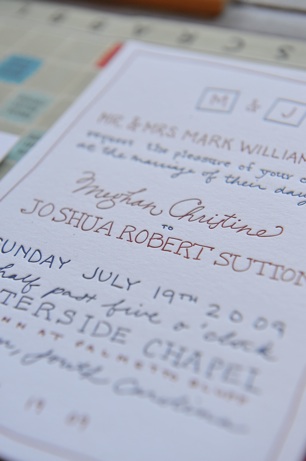 M & J
MR. & MRS MARK WILLIAM
request the pleasure of your
at the marriage of their
Meghan Christine
TO
JOSHUA ROBERT SUTTON
SUNDAY JULY 19TH 2009
half past five o'clock
TERSIDE CHAPEL
INN AT PALMETTO BLUFF
South Carolina